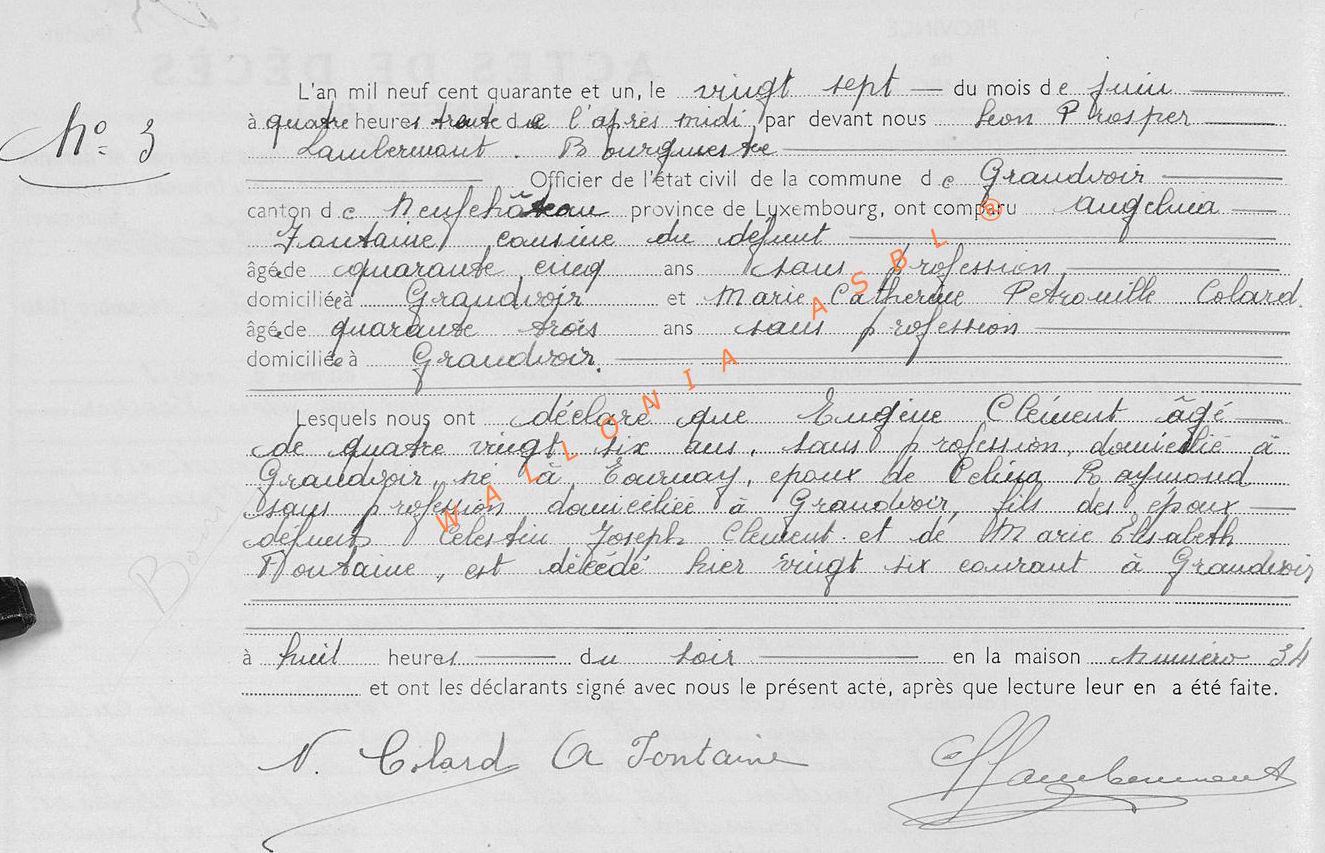 L'an mil neuf cent quarante et un, le vingt sept du mois de juin
Nº 3
à quatre heures trente de l'après midi, par devant nous Léon Prosper
Lambermont. Bourgmestre
Officier de l'état civil de la commune de Grandvoir
canton de Neufchâteau province de Luxembourg, ont comparu Angelina
Fontaine, cousine du défunt
âgée de quarante cinq ans sans profession,
domiciliée à Grandvoir et Marie Catherine Petronille Colard.
âgée de quarante trois ans sans profession
domiciliée à Grandvoir.
Lesquels nous ont déclaré que Eugène Clément âgé
de quatre vingt six ans, sans profession, domicilié à
Grandvoir, né à Tournay, epoux de Celina Raymond
sans profession domiciliée à Grandvoir, fils des époux
défunts Célestin Joseph Clément et de Marie Elisabeth
Fontaine, est décédé hier vingt six courant à Grandvoir
à huit heures du soir en la maison numéro 34
et ont les déclarants signé avec nous le présent acte, après que lecture leur en a été faite.
N. Colard A Fontaine Lambermont
WALLONIA ASBL @
ACTES DE DÉCÈS